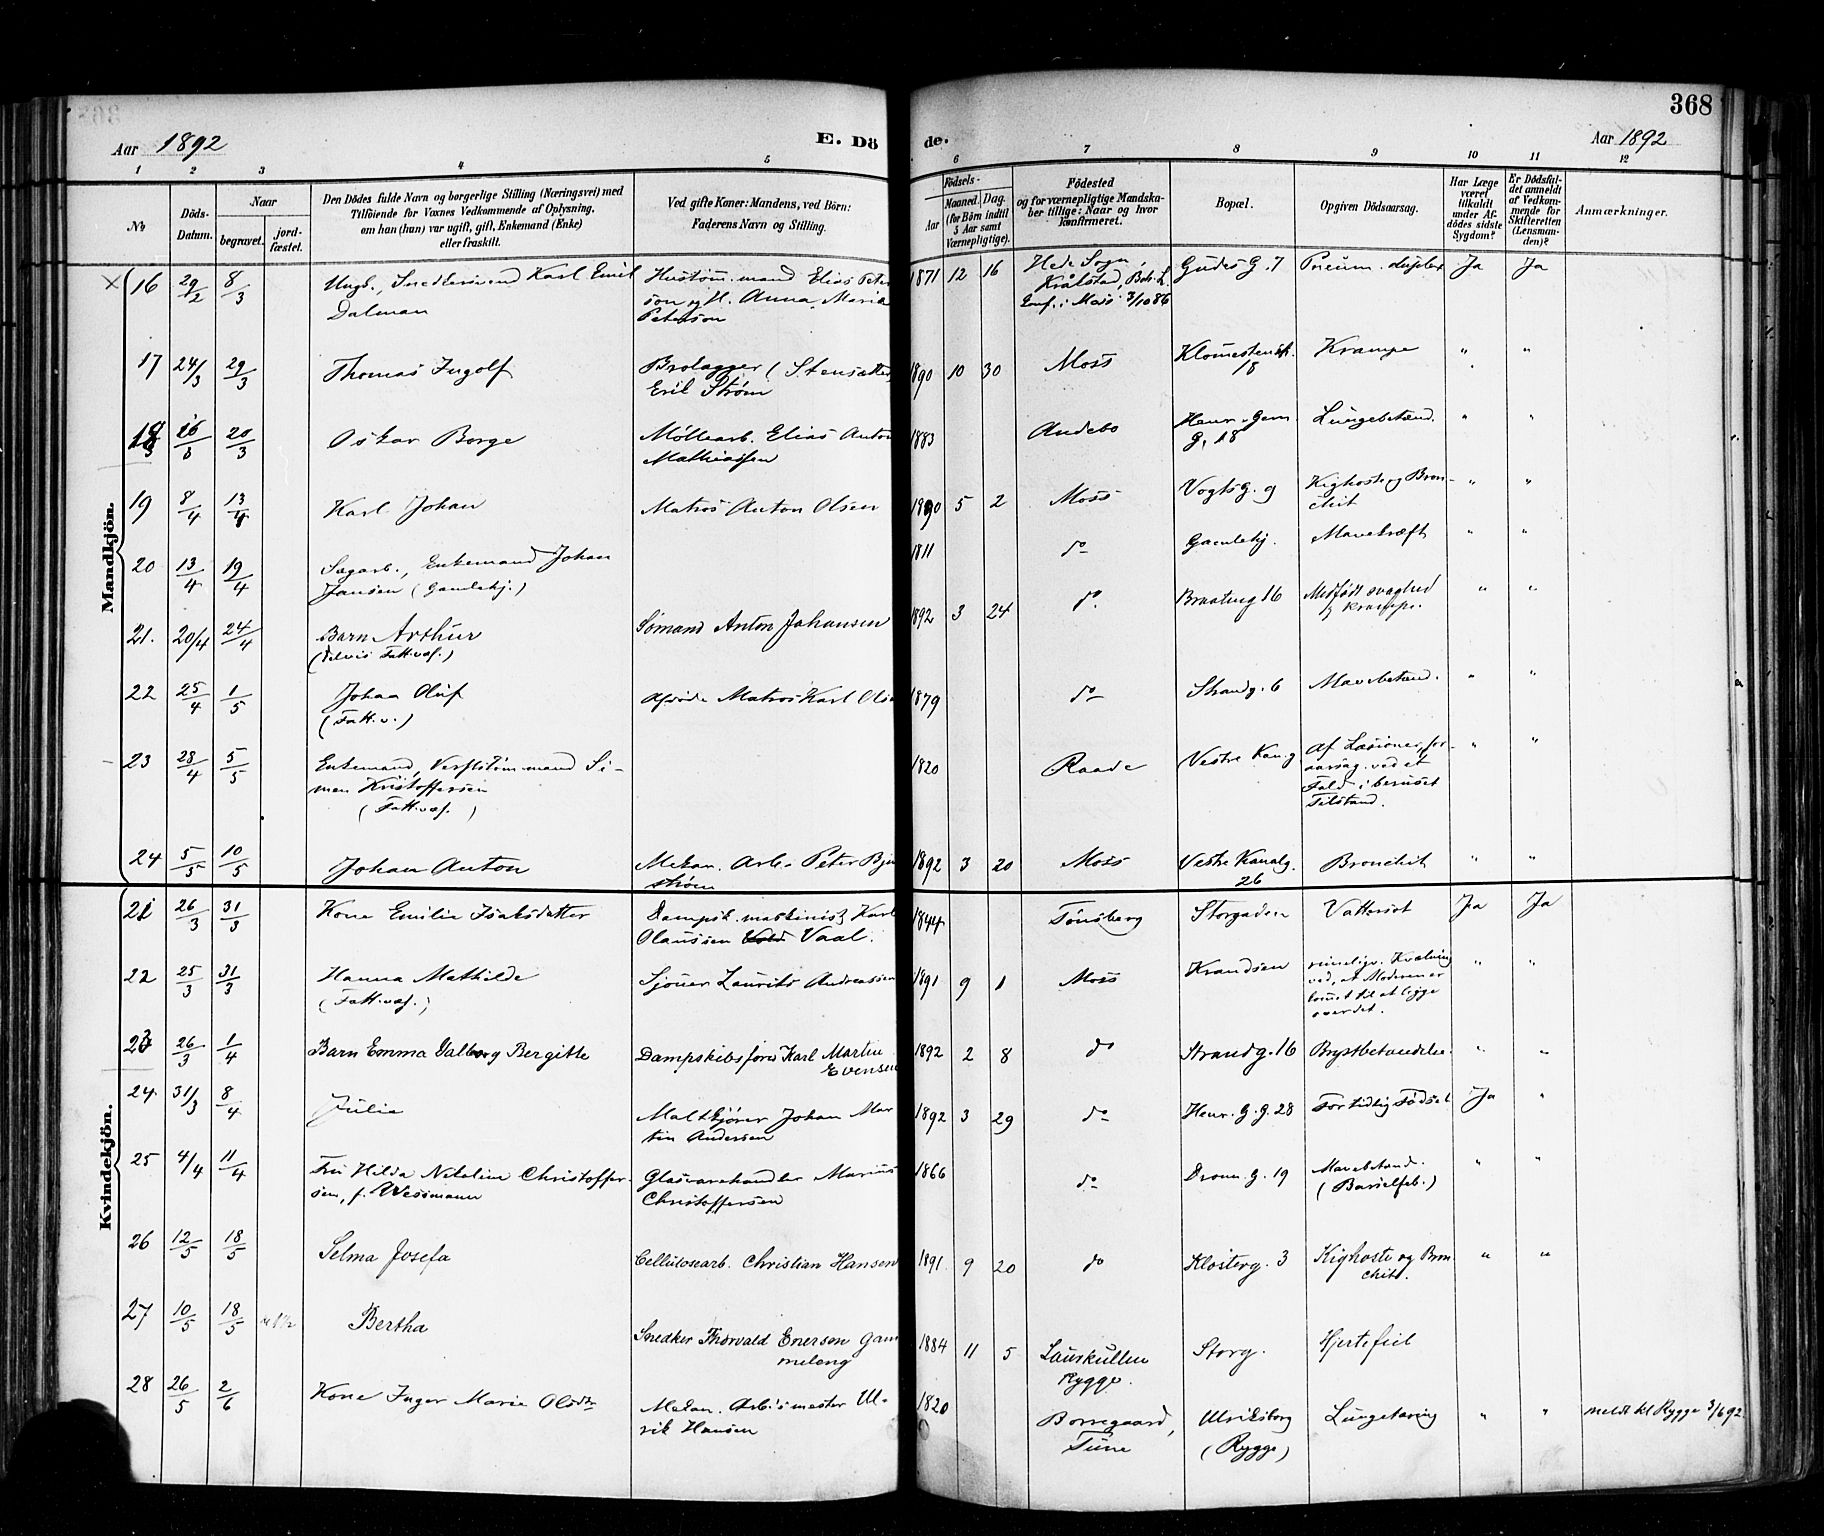 368
Aar 1892
E. Dö
de.
Aar 1892
1 2 3 4 5 6 7 8 9 10 11 12
№
Döds-
Datum.
Naar
begravet.
jord-
fæstet.
Den Dödes fulde Navn og borgerlige Stilling (Næringsvei) med
Tilföiende for Voxnes Vedkommende af Oplysning,
om han (hun) var ugift, gift, Enkemand (Enke)
eller fraskilt.
Ved gifte Koner: Mandens, ved Börn:
Faderens Navn og Stilling.
Födsels-
Aar
Maaned. Dag.
(for Börn indtil
5 Aar samt
Værnepligtige).
Födested
og for værnepligtige Mandska-
ber tillige: Naar og hvor
konfirmeret.
Bopæl.
Opgiven Dödsaarsag.
Har Læge
været
tilkaldt
under Af-
dödes sidste
Sygdom?
Er Dödsfal-
det anmeldt
af Vedkom-
mende for
Skifteretten
(Lensman-
den)?
Anmærkninger.
Mandkjön.
16 29/2 8/3 Ungk., Snedkersvend Karl Emil
Dalman
Hustöm.mand Elias Peter
son og H. Anna Maria
Peterson
1871 12 16
Hede Sogn,
Kråkstad, Boh. L.
Conf. i Moss 3/10 86
Gudes G. 7 Pneum. duplex Ja Ja
17 24/3 29/3 Thomas Ingolf
Brolægger (Stensætter)
Eril Strøm
1890 10 30 Moss
18 Krampe " "
18 16/3 20/3 Oskar Borge
Møllearb. Elias Anton
Mathiassen
1883 Andebo
Henr. Gern
G. 18
Lungebetænd. " "
19 8/4 13/4 Karl Johan Matros Anton Olsen 1890 5 2 Moss Vogts G. 9
Kighoste og Bron-
chit
" "
20 13/4 19/4 Sagarb., Enkemand Johan
Jansen (Gamlehj.)
1811 do Gamlehj. Mavekræft " "
21. 20/4 24/4 Barn Arthur
(Delvis Fatt.væs.)
Sømand Anton Johansen 1892 3 24 do. Braateng 16
Medfødt svaghed
og krampe.
" "
22 25/4 1/5 Johan Oluf
(Fatt.v.)
Afdøde Matros Karl Olse 1879 do Strandg. 6 Mavebetænd. " "
23 28/4 5/5 Enkemand, Verftstöm.mand Si-
men Kristoffersen
(Fatt.væs.)
1820 Raade Vestre Kan.g
Af Læsioner, for-
aarsag. ved et
Fald i beruset
Tilstand.
" "
24 5/5 10/5 Johan Anton
Mekan. Arb. Peter Bju
strøm
1892 3 20 Moss
Vestre Kanalg.
26
Bronchit " "
Kvindekjön.
21 26/3 31/3 Kone Emilie Isaksdatter
Dampsk. maskinist Karl
Olaussen Vaal.
1844 Tønsberg Storgaden Vattersot Ja Ja
22 25/3 31/3 Hanna Mathilde
(Fatt.væs.)
Sjouer Laurits Andreassen 1891 9 1 Moss Krandsen
rimeligv. Kvælning
ved, at Moderen er
kommet til at ligge
over det.
" "
23 26/3 1/4 Barn Emma Valborg Bergitte
Dampskibsfører Karl Martin
Evensen
1892 2 8 do Strandg. 16 Brystbetændelse. " "
24 31/3 8/4 Julie
Maltkjører Johan Mar
tin Andersen
1892 3 29 do Henr. G. g. 28 For tidlig Fødsel Ja "
25 4/4 11/4 Fru Hilda Nikoline Christoffer-
sen, f. Wessmann
Glasvarehandler Marius
Christoffersen
1866 do Dronn. G. 19
Mavebetænd.
(Barselfeb.)
" "
26 12/5 18/5 Selma Josefa Cellulosearb. Christian Hansen 1891 9 20 do Klosterg. 3
Kighoste og Bron
chit.
" "
27 10/5 18/5 Bertha
Snedker Thorvald Enersen Gam
meleng
1884 11 5
Lauskullen
Rygge.
Storg. Hjertefeil
28 26/5 2/6 Kone Inger Marie Olsdtr
Mekan. Arb.smester Ul-
rik Hansen
1820
Borregaard,
Tune
Ulriksborg
(Rygge)
Lungetæring " " meldt til Rygge 3/6 92